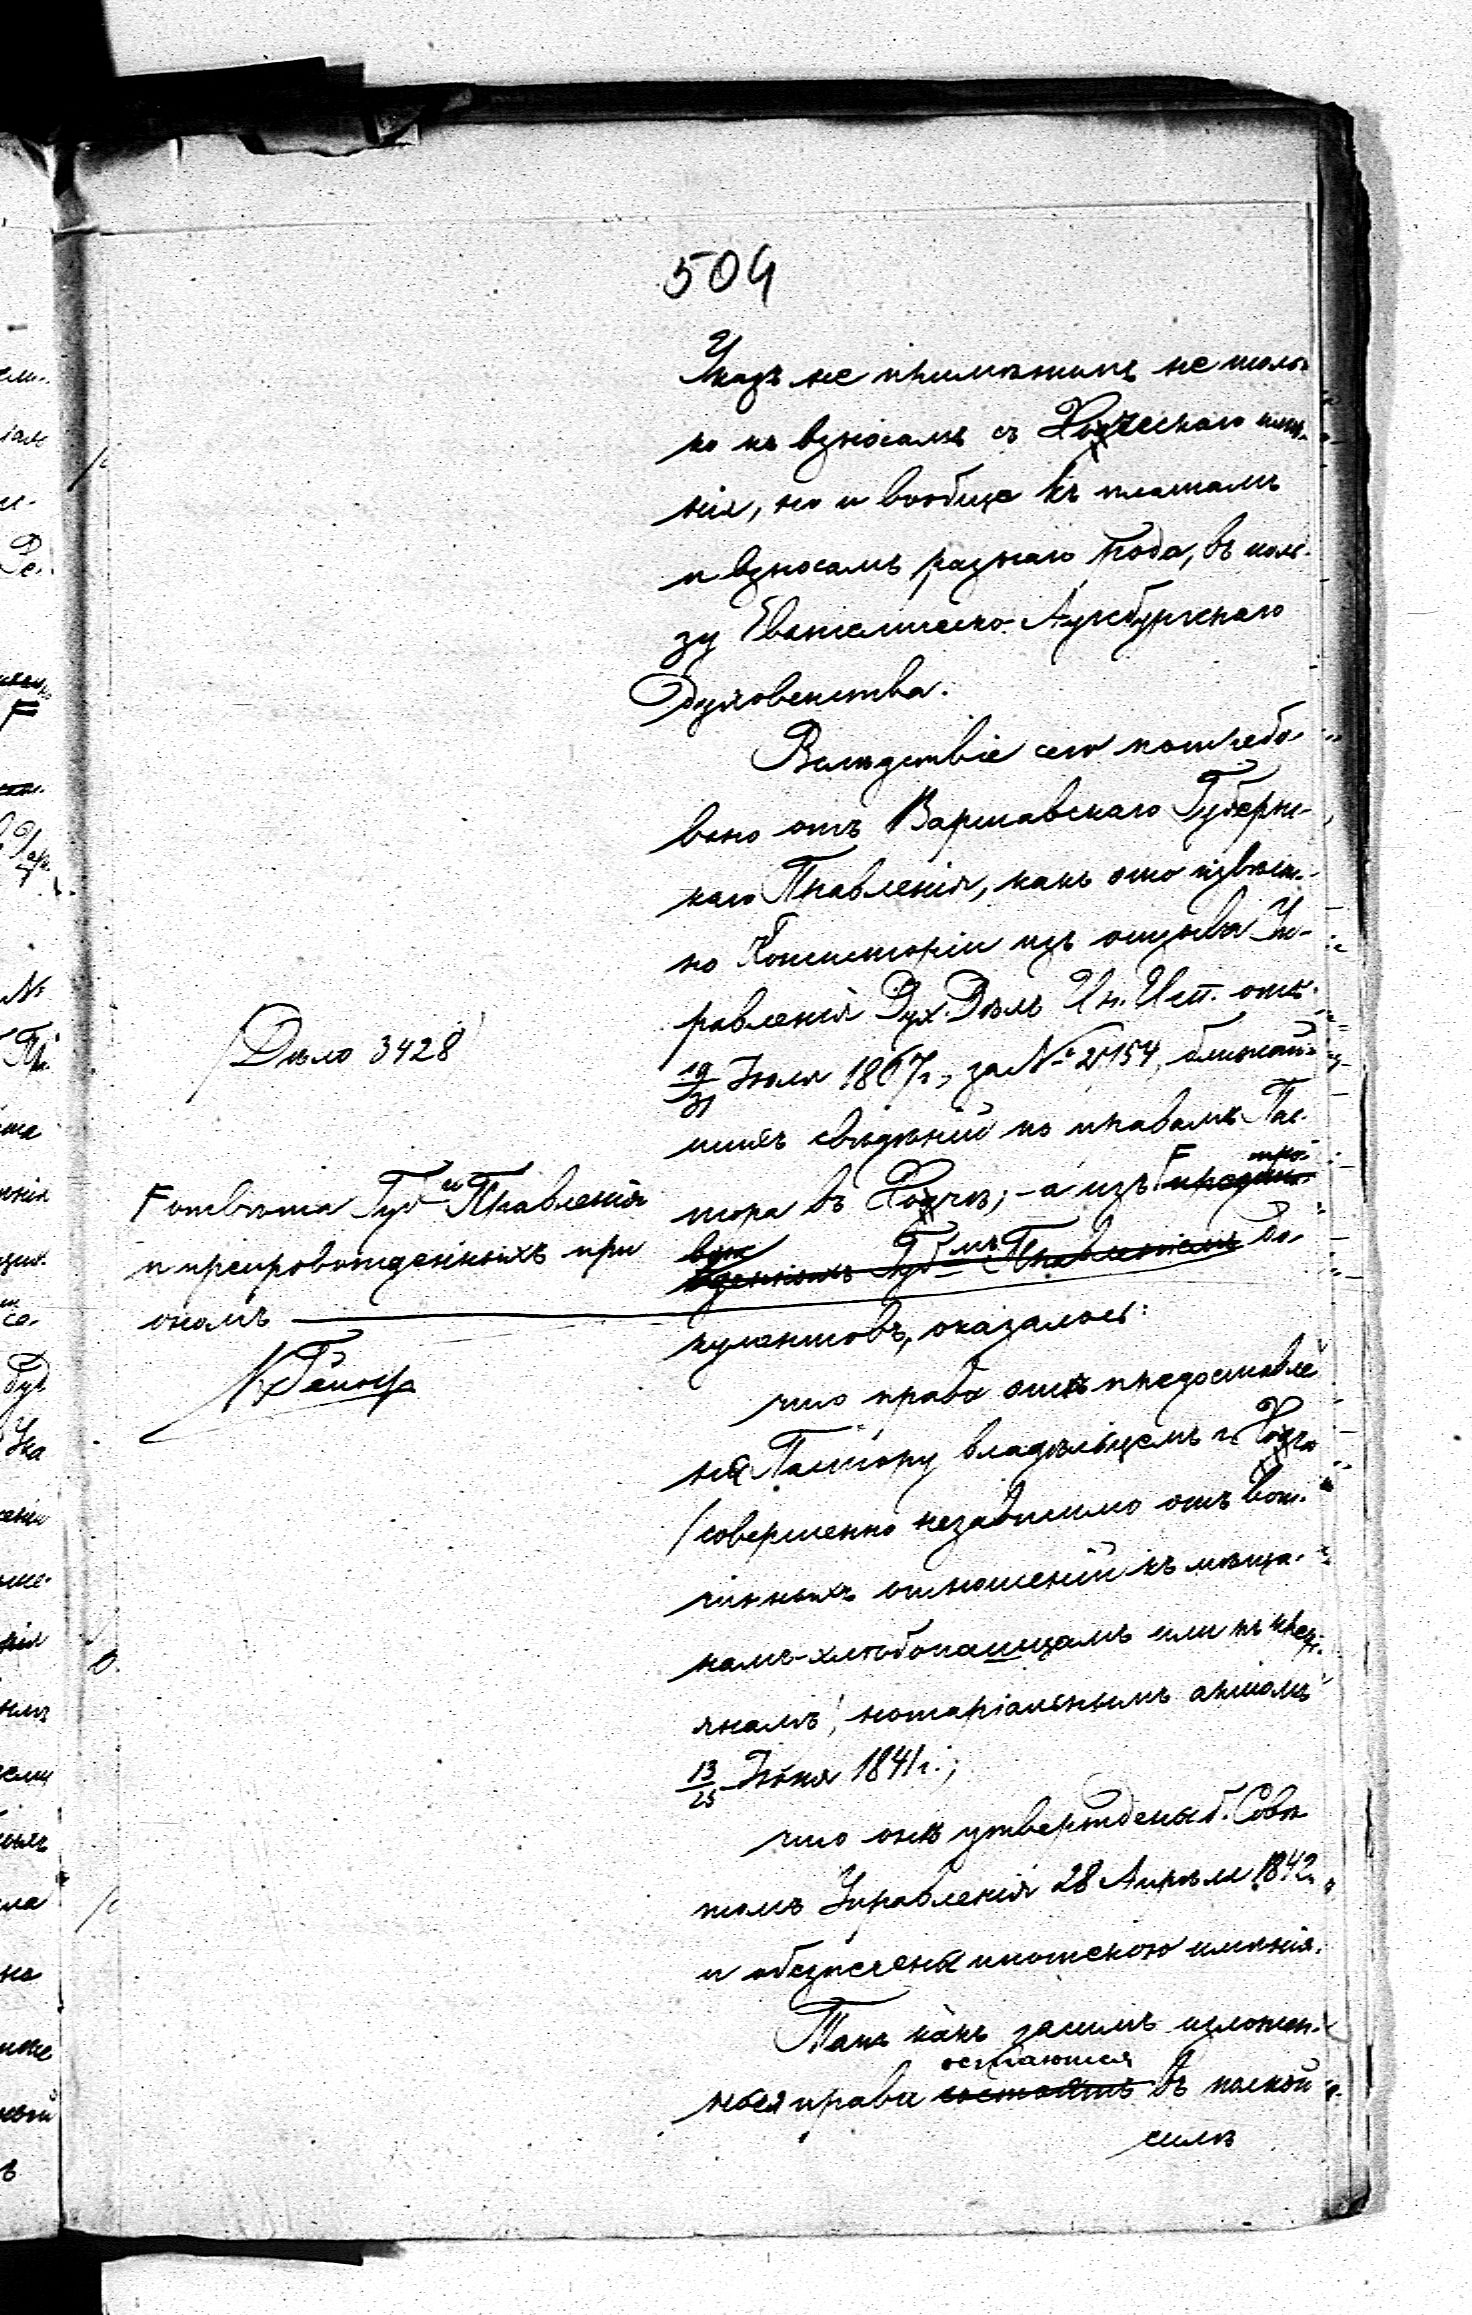 504
Указъ не примѣнимъ не толь-
ко къ взносамъ съ Ходческаго имѣ-
нія, но и вообще къ платамъ
и взносамъ разнаго рода, въ поль-
зу Евангелическо-Аугсбургскаго
Духовенства.
Вслѣдствіе сего потребо-
вано отъ Варшавскаго Губерн-
скаго Правленія, какъ это извѣст-
но Консисторіи изъ отзыва Уп-
равленія Дух. Дѣлъ Ин. Исп. отъ
19/31 Іюля 1867 г., за № 2154, ближай-
шихъ свѣдѣній по правамъ Пас-
тора въ Ходчѣ; - а изъ F
до-
кументовъ, оказалось:
что права эти предоставле-
ны Пастору владѣльцемъ г. Ходча
/совершенно независимо отъ вот-
чинныхъ отношеній къ мѣща-
намъ-хлѣбопашцамъ или къ крест-
янамъ/, нотаріальнымъ актомъ
13/25 Іюня 1841 г.;
что онѣ утверждены б. Совѣ-
томъ Управленія 28 Апрѣля 1842 г.
и обезпечены ипотекою имѣнія.
Такъ какъ затѣмъ изложен-
остаются
ныя права состоятъ въ полной
силѣ
/Дѣло 3428/
F отвѣта Губ-го Правленія
и препровожденныхъ при
ономъ